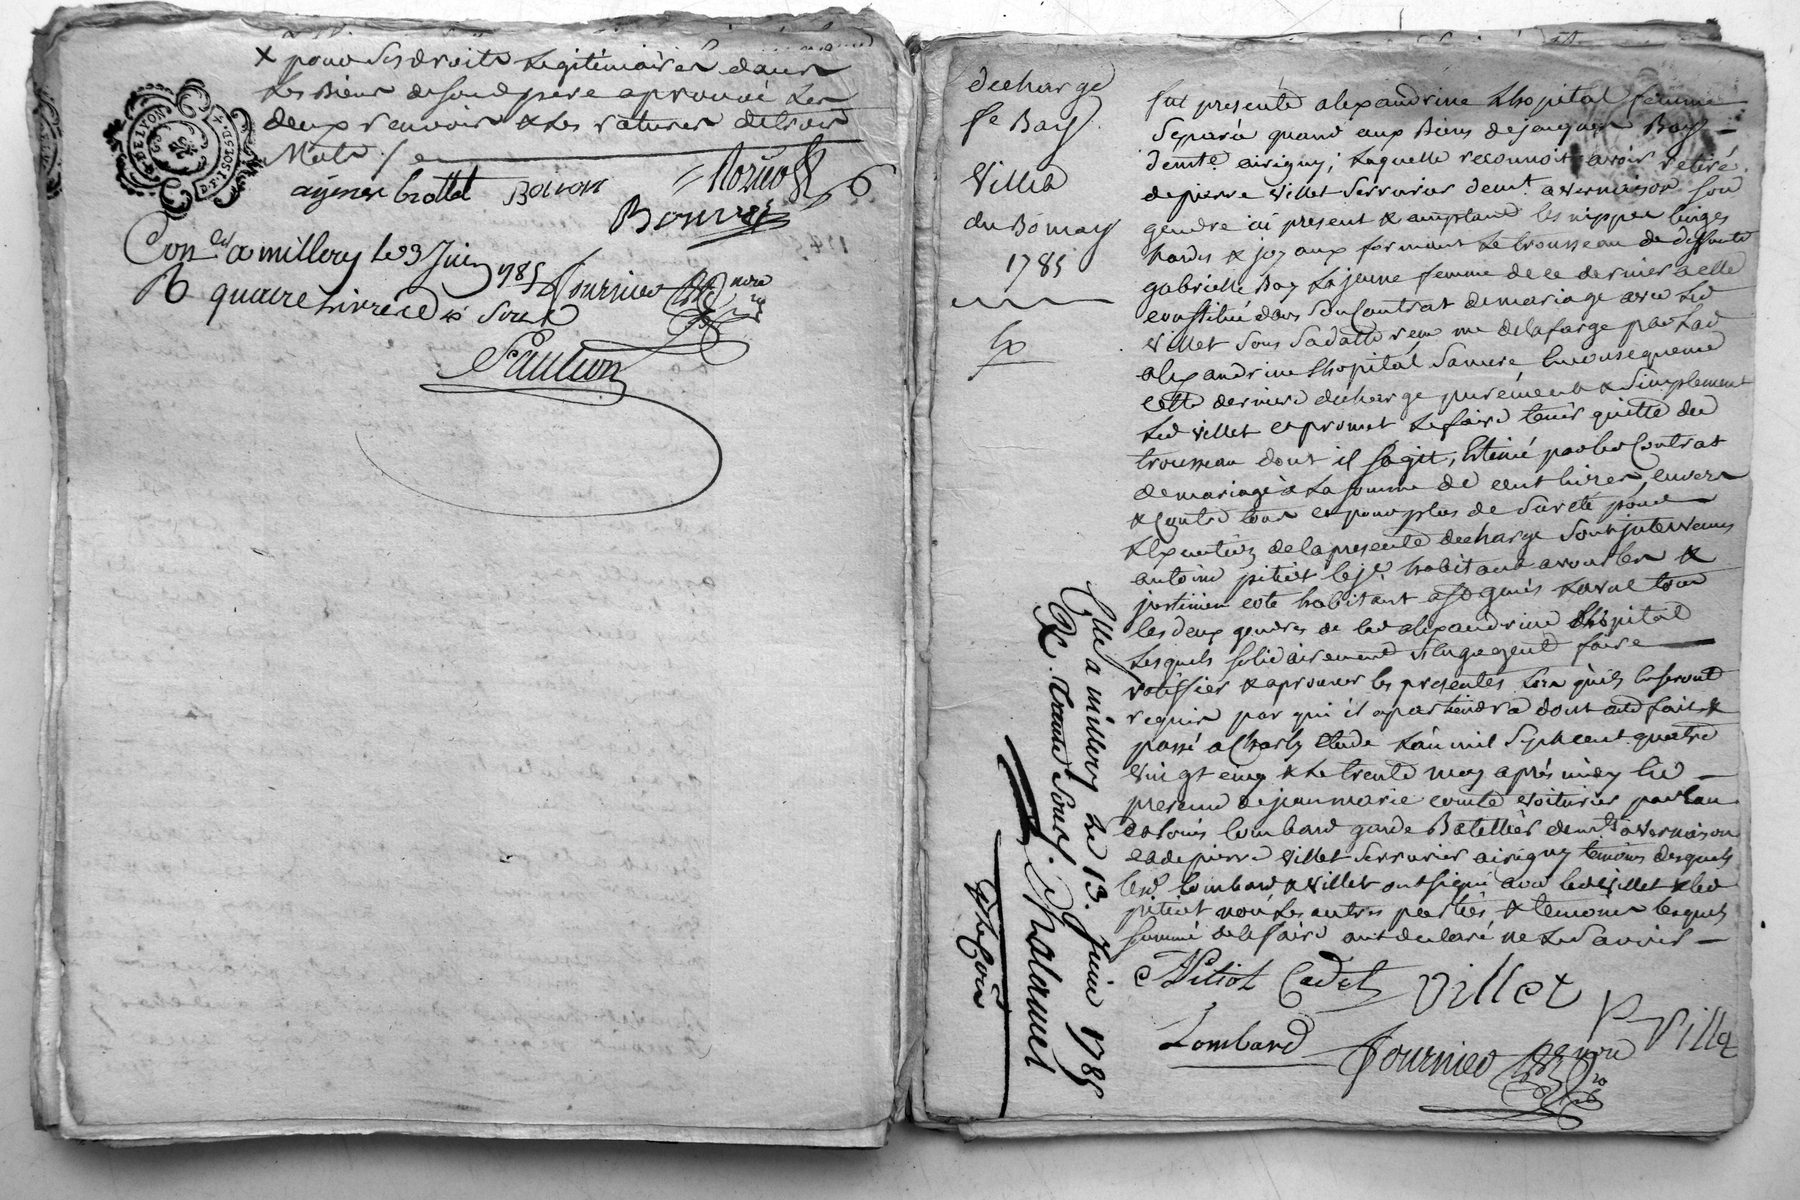 x pour ses droits legitimaires dans
les biens de son pere aprouvé les
deux renvois & les ratures de trois
Mots /.
GEN. DE LYON
4. D. 15 SOLS P. F.
aymes brottet Bonon
Con.lé a millery le 3 Juin 1785 Fournier nore
R quatre livres dix sols
decharge
fe Bay
Villet
du 30 may
1785
fut presente alexandrine Lhopital femme
separée quand aux biens de jacques Bay
demte a irigny; laquelle reconnoit avoir retiré
de pierre villet serrurier demt a vernaison son
gendre ici present & acceptant les nippes linges
hardes & joyaux formant le trousseau de deffunte
gabrielle Bay la jeune femme de ce dernier a elle
constitué dans son contrat de mariage avec led
villet sous sa datte reçu me delafarge par lad
alexandrine Lhopital sa mere en consequence
cette derniere decharge purement & simplement
led villet et promet le faire tenir quitte du
trousseau dont il s'agit, estimé par led contrat
de mariage a la somme de cent livres, envers
& contre tous et pour plus de sureté pour
l'execution de la presente decharge sont intervenus
antoine pitiot le je habitant a vourles &
justinien cote habitant a st genis laval tous
les deux gendres de lad alexandrine Lhopital
lesquels solidairement s'engagent faire
ratiffier & aprouver les presentes lors qu'ils en seront
requis par qui il apartiendra dont acte fait &
passé a Charly etude l'an mil sept cent quatre
vingt cinq & le trente may après midy en
presence de jean marie comte voiturier par eau
de louis lombard garde Batellier demts a vernaison
et de pierre villet serrurier a irigny temoins desquels
lesd lombard & villet ont signé avec led villet & led
pitiot non les autres parties & temoins lesquels
sommé de le faire ont declaré ne le savoir
Pitiot Cadet villet
P villet
Lombard Fournier nore
Clle a millery le 13. Juin 1785
R. trente sols. Chalamel